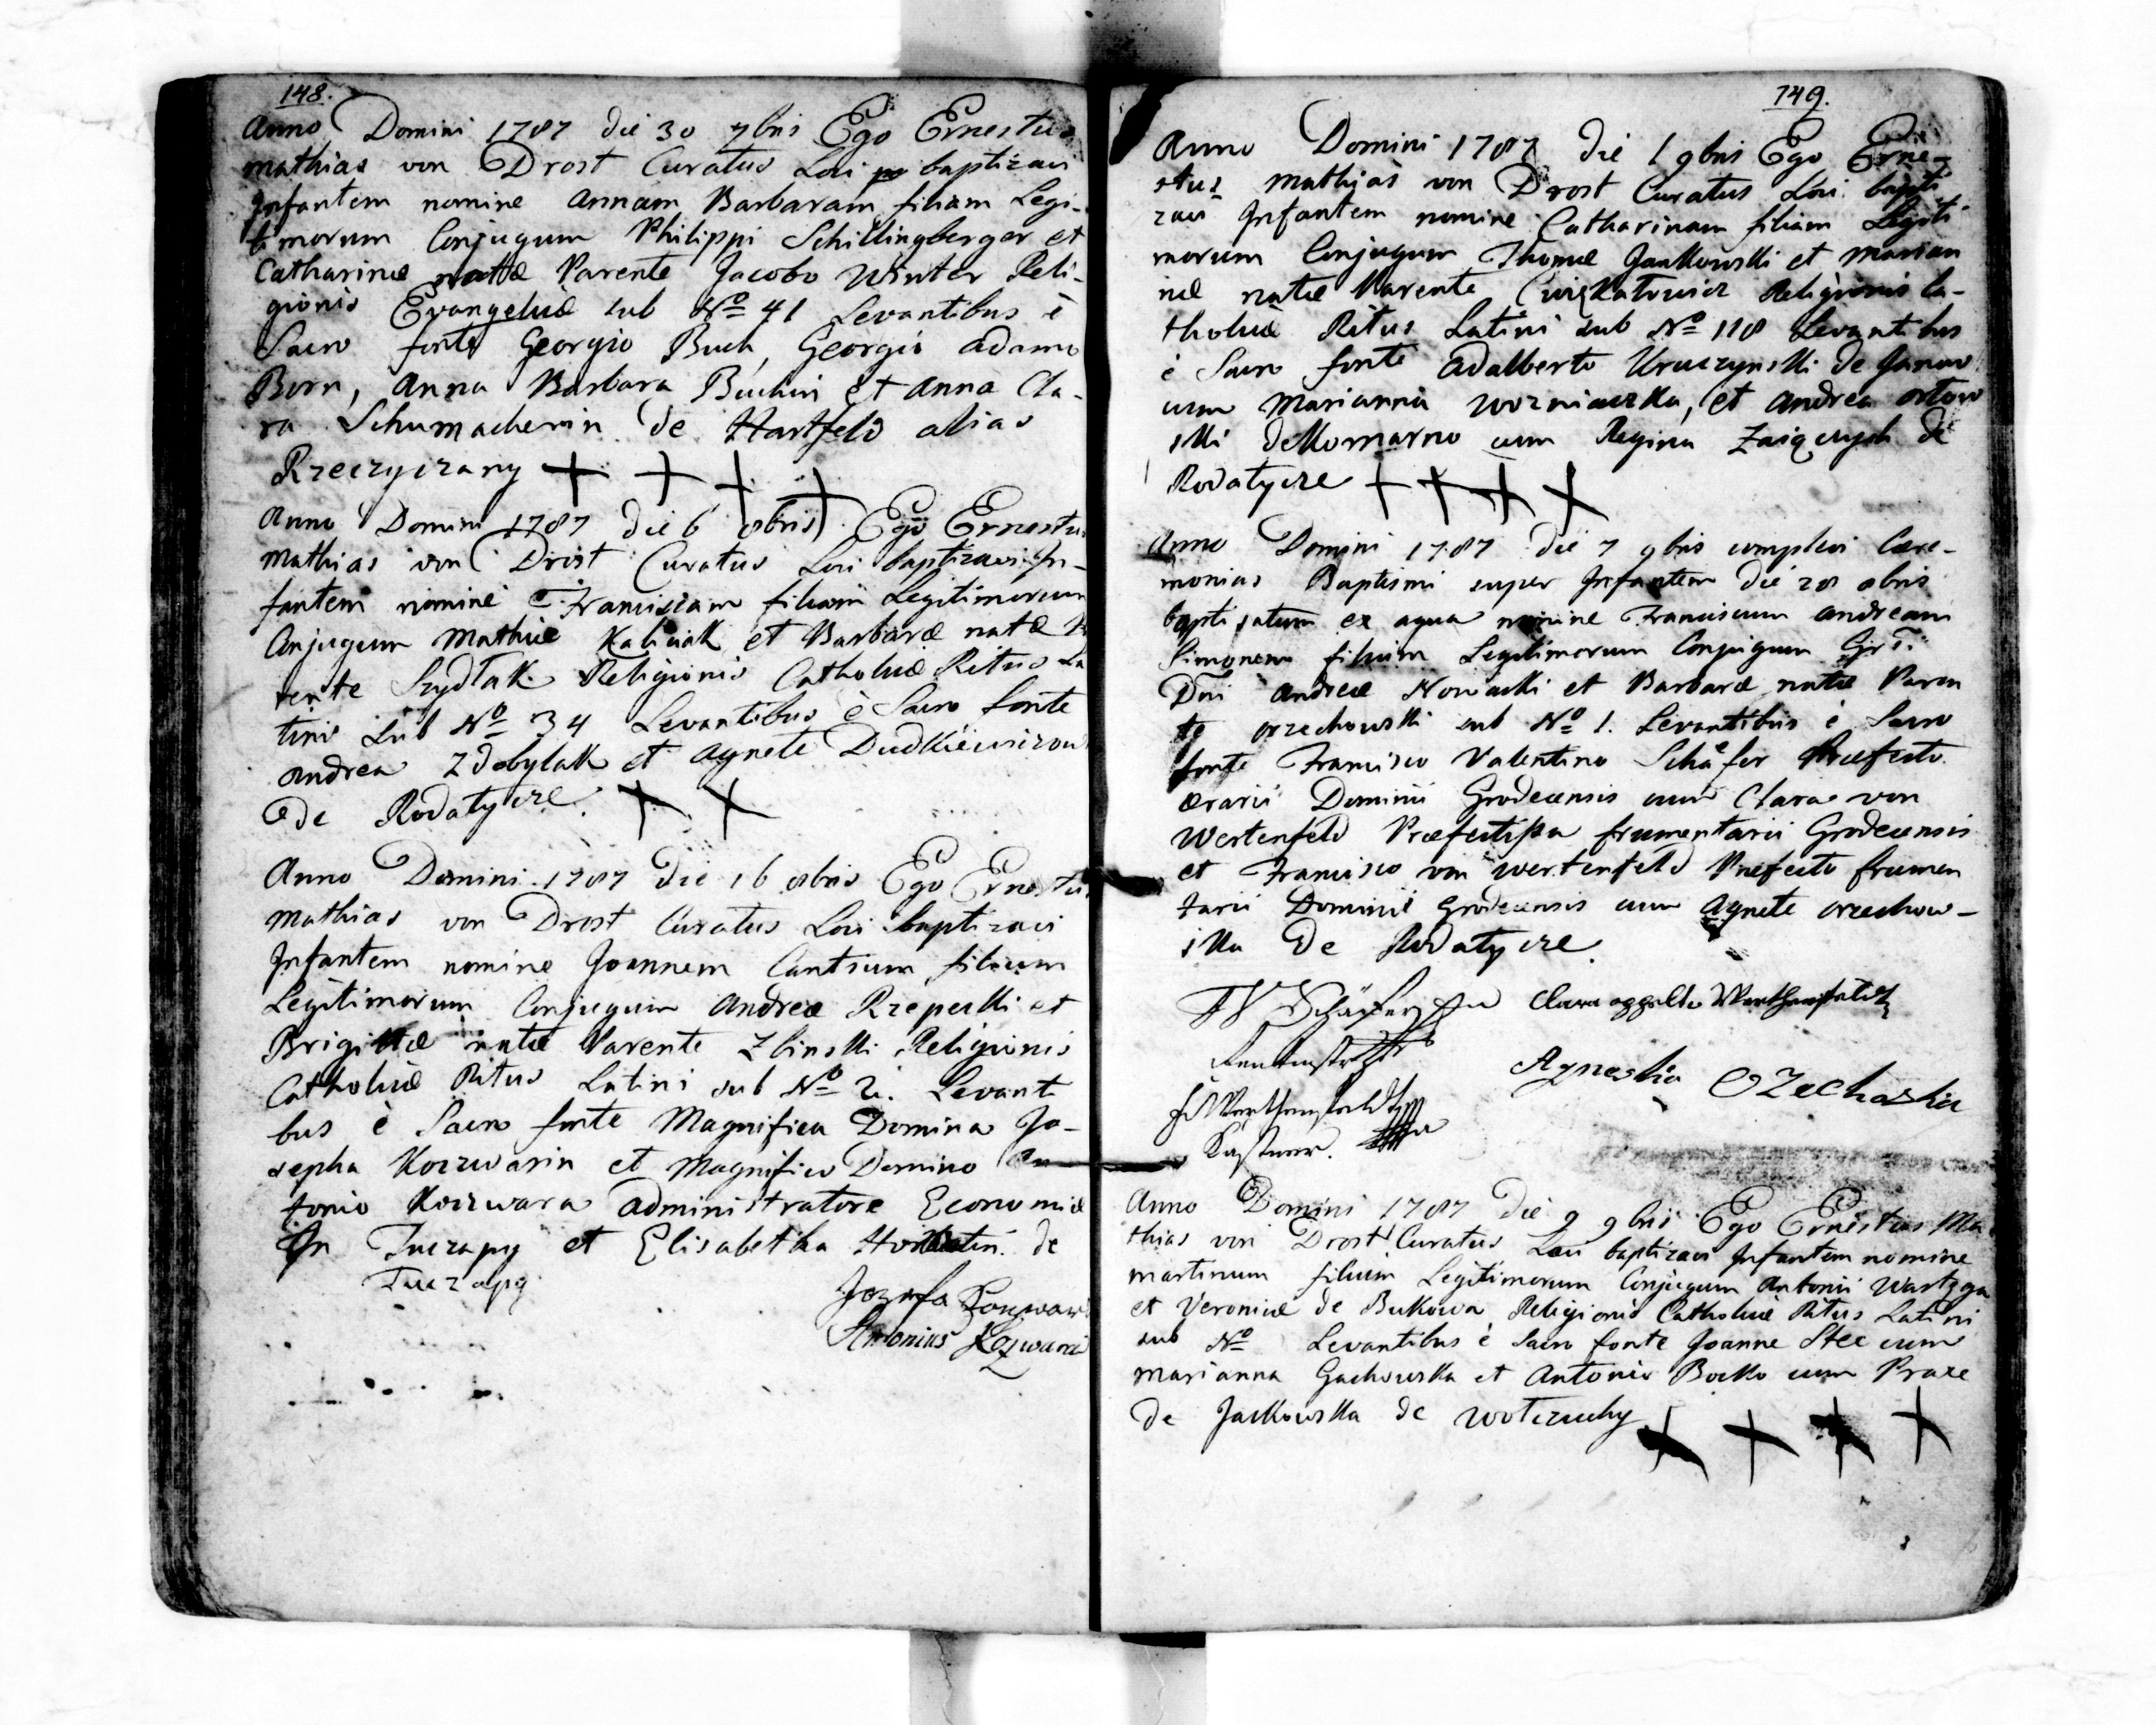 148.
Anno Domini 1787 die 30 7bris Ego Ernestus
Mathias von Drost Curatus Loci baptizavi
Infantem nomine Annam Barbaram filiam Legi-
timorum Conjugum Philippi Schillingberger et
Catharinæ natæ Parente Jacobo Winter Reli-
gionis Evangelicæ sub No 41 Levantibus è
Sacro fonte Georgio Buch, Georgio Adamo
Born, Anna Barbara Buchin et Anna Cla-
ra Schumacherin de Hartfeld alias
Rzeczyczany + + + +
Anno Domini 1787 die 6 8bris Ego Ernestus
Mathias von Drost Curatus Loci baptizavi In-
fantem nomine Franciscam filiam Legitimorum
Conjugum Mathiæ Kaliciak et Barbaræ natæ Pa
rente Szydlak Religionis Catholicæ Ritus La
tini sub No 34 Levantibus è Sacro fonte
Andrea Zdobylak et Agnete Dudkiewiczow
de Rodatycze. + +
Anno Domini 1787 die 16 8bris Ego Ernestus
Mathias von Drost Curatus Loci baptizavi
Infantem nomine Joannem Cantium filium
Legitimorum Conjugum Andreæ Rzepecki et
Brigittæ natæ Parente Zbinski Religionis
Catholicæ Ritus Latini sub No 2. Levanti
bus è Sacro fonte Magnifica Domina Jo-
sepha Koczwarin et Magnifico Domino An
tonio Koczwara Administratore Economiæ
In Tuczapy et Elisabetha de
Tuczapy
Jozefa
Antonius
149.
Anno Domini 1787 die 1 9bris Ego Erne-
stus Mathias von Drost Curatus Loci bapti
zavi Infantem nomine Catharinam filiam Legiti
morum Conjugum Thomæ Jankowski et Marian
næ natæ Parente Cwiękatowicz Religionis Ca-
tholicæ Ritus Latini sub No 118 Levantibus
è Sacro fonte Adalberto Kruczynski de Janow
cum Marianna Wozniaczka, et Andrea Ortow
ski de Komarno cum Regina Zaiączych de
Rodatycze + + + +
Anno Domini 1787 die 7 9bris complevi Cære-
monias Baptismi super Infantem die 28 8bris
baptisatum ex aqua nomine Franciscum Andream
Simonem filium Legitimorum Conjugum
Dni Andreæ Nowacki et Barbaræ natæ Paren
te Orzechowski sub No 1. Levantibus è Sacro
fonte Francisco Valentino Schäfer Præfecto
ærarii Dominii Grodecensis cum Clara von
Wertenfeld Præfectissa frumentarii Grodecensis
et Francisco von Wertenfeld Præfecto frumen
tarii Dominii Grodecensis cum Agnete Orzechow-
ska de Rodatycze.
Schäfer Clara
Agneska OZechoska
Kastner.
Anno Domini 1787 Die 9 9bris Ego Ernestus Ma
thias von Drost Curatus Loci baptizavi Infantem nomine
Martinum filium Legitimorum Conjugum Antonii
et Veronicæ de Bukowa Religionis Catholicæ Ritus Latini
sub No Levantibus è Sacro fonte Joanne Stec cum
Marianna Gachowska et Antonio Bocko cum Praxe
de Jackowska de Wotczuchy + + + +